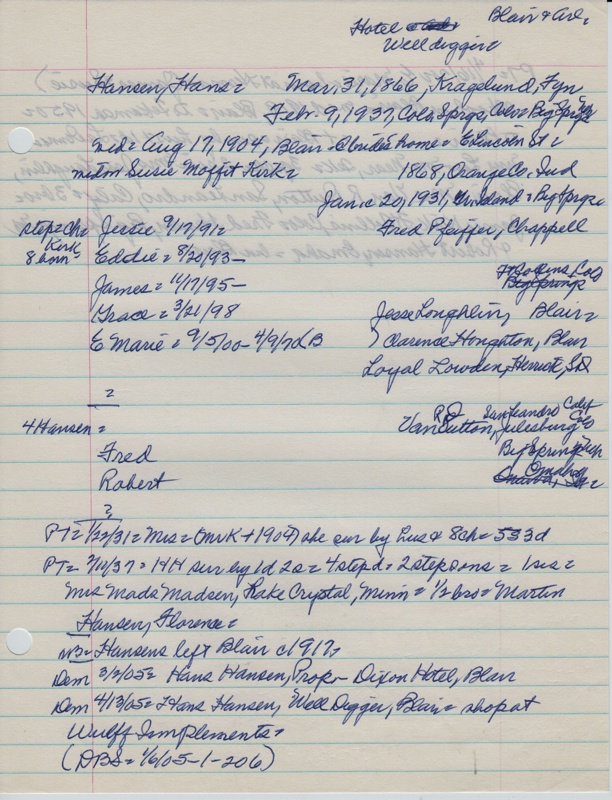 Blair & Arl,
Hotel
Welldigging
Hansen, Hans = Mar, 31, 1866, Kragelund, Fyn
Febr. 9, 1937, Colo Sprgs, Colo = Big Springs
md = Aug 17, 1904, Blair - brides home = E Lincoln St =
mdm Susie Moffit Kirk = 1868, Orange Co. Ind
Jan. 20, 1931, = Big Sprgs =
step = ch = Jessie 9/17/91 = Fred Pfeiffer, Chappell
Kirk
8 Eddie = 8/20/93 -
Ft Collins, Colo
James = 11/17/95 - Big Springs
Grace = 3/21/98 Jesse Loughlin, Blair =
E Marie = 9/5/00 - 4/9/70 LB Clarence Houghton, Blair
Loyal Lowden, Herrick, SD
=
4 Hansen = RD San Leandro Calif
Van Sutton, Julesburg Colo
Fred Big Springs
Robert Omaha
?
PT = 1/22/31 = Mrs = (mrK + 1904) she sur by hus & 8 ch = 533d
PT = 2/11/37 = HH sur by 1d 2s = 4 stepd = 2 stepsons = 1 sis =
Mrs Mads Madsen, Lake Crystal, Minn = 1/2 bro = Martin
Hansen, Florence =
NB = Hansens left Blair c1917,
Dem 3/2/05 = Hans Hansen, Propr Dixon Hotel, Blair
Dem 4/13/05 = Hans Hansen, Well Digger, Blair = shop at
Wulff Implements =
(DBS = 1/6/05-1-206)